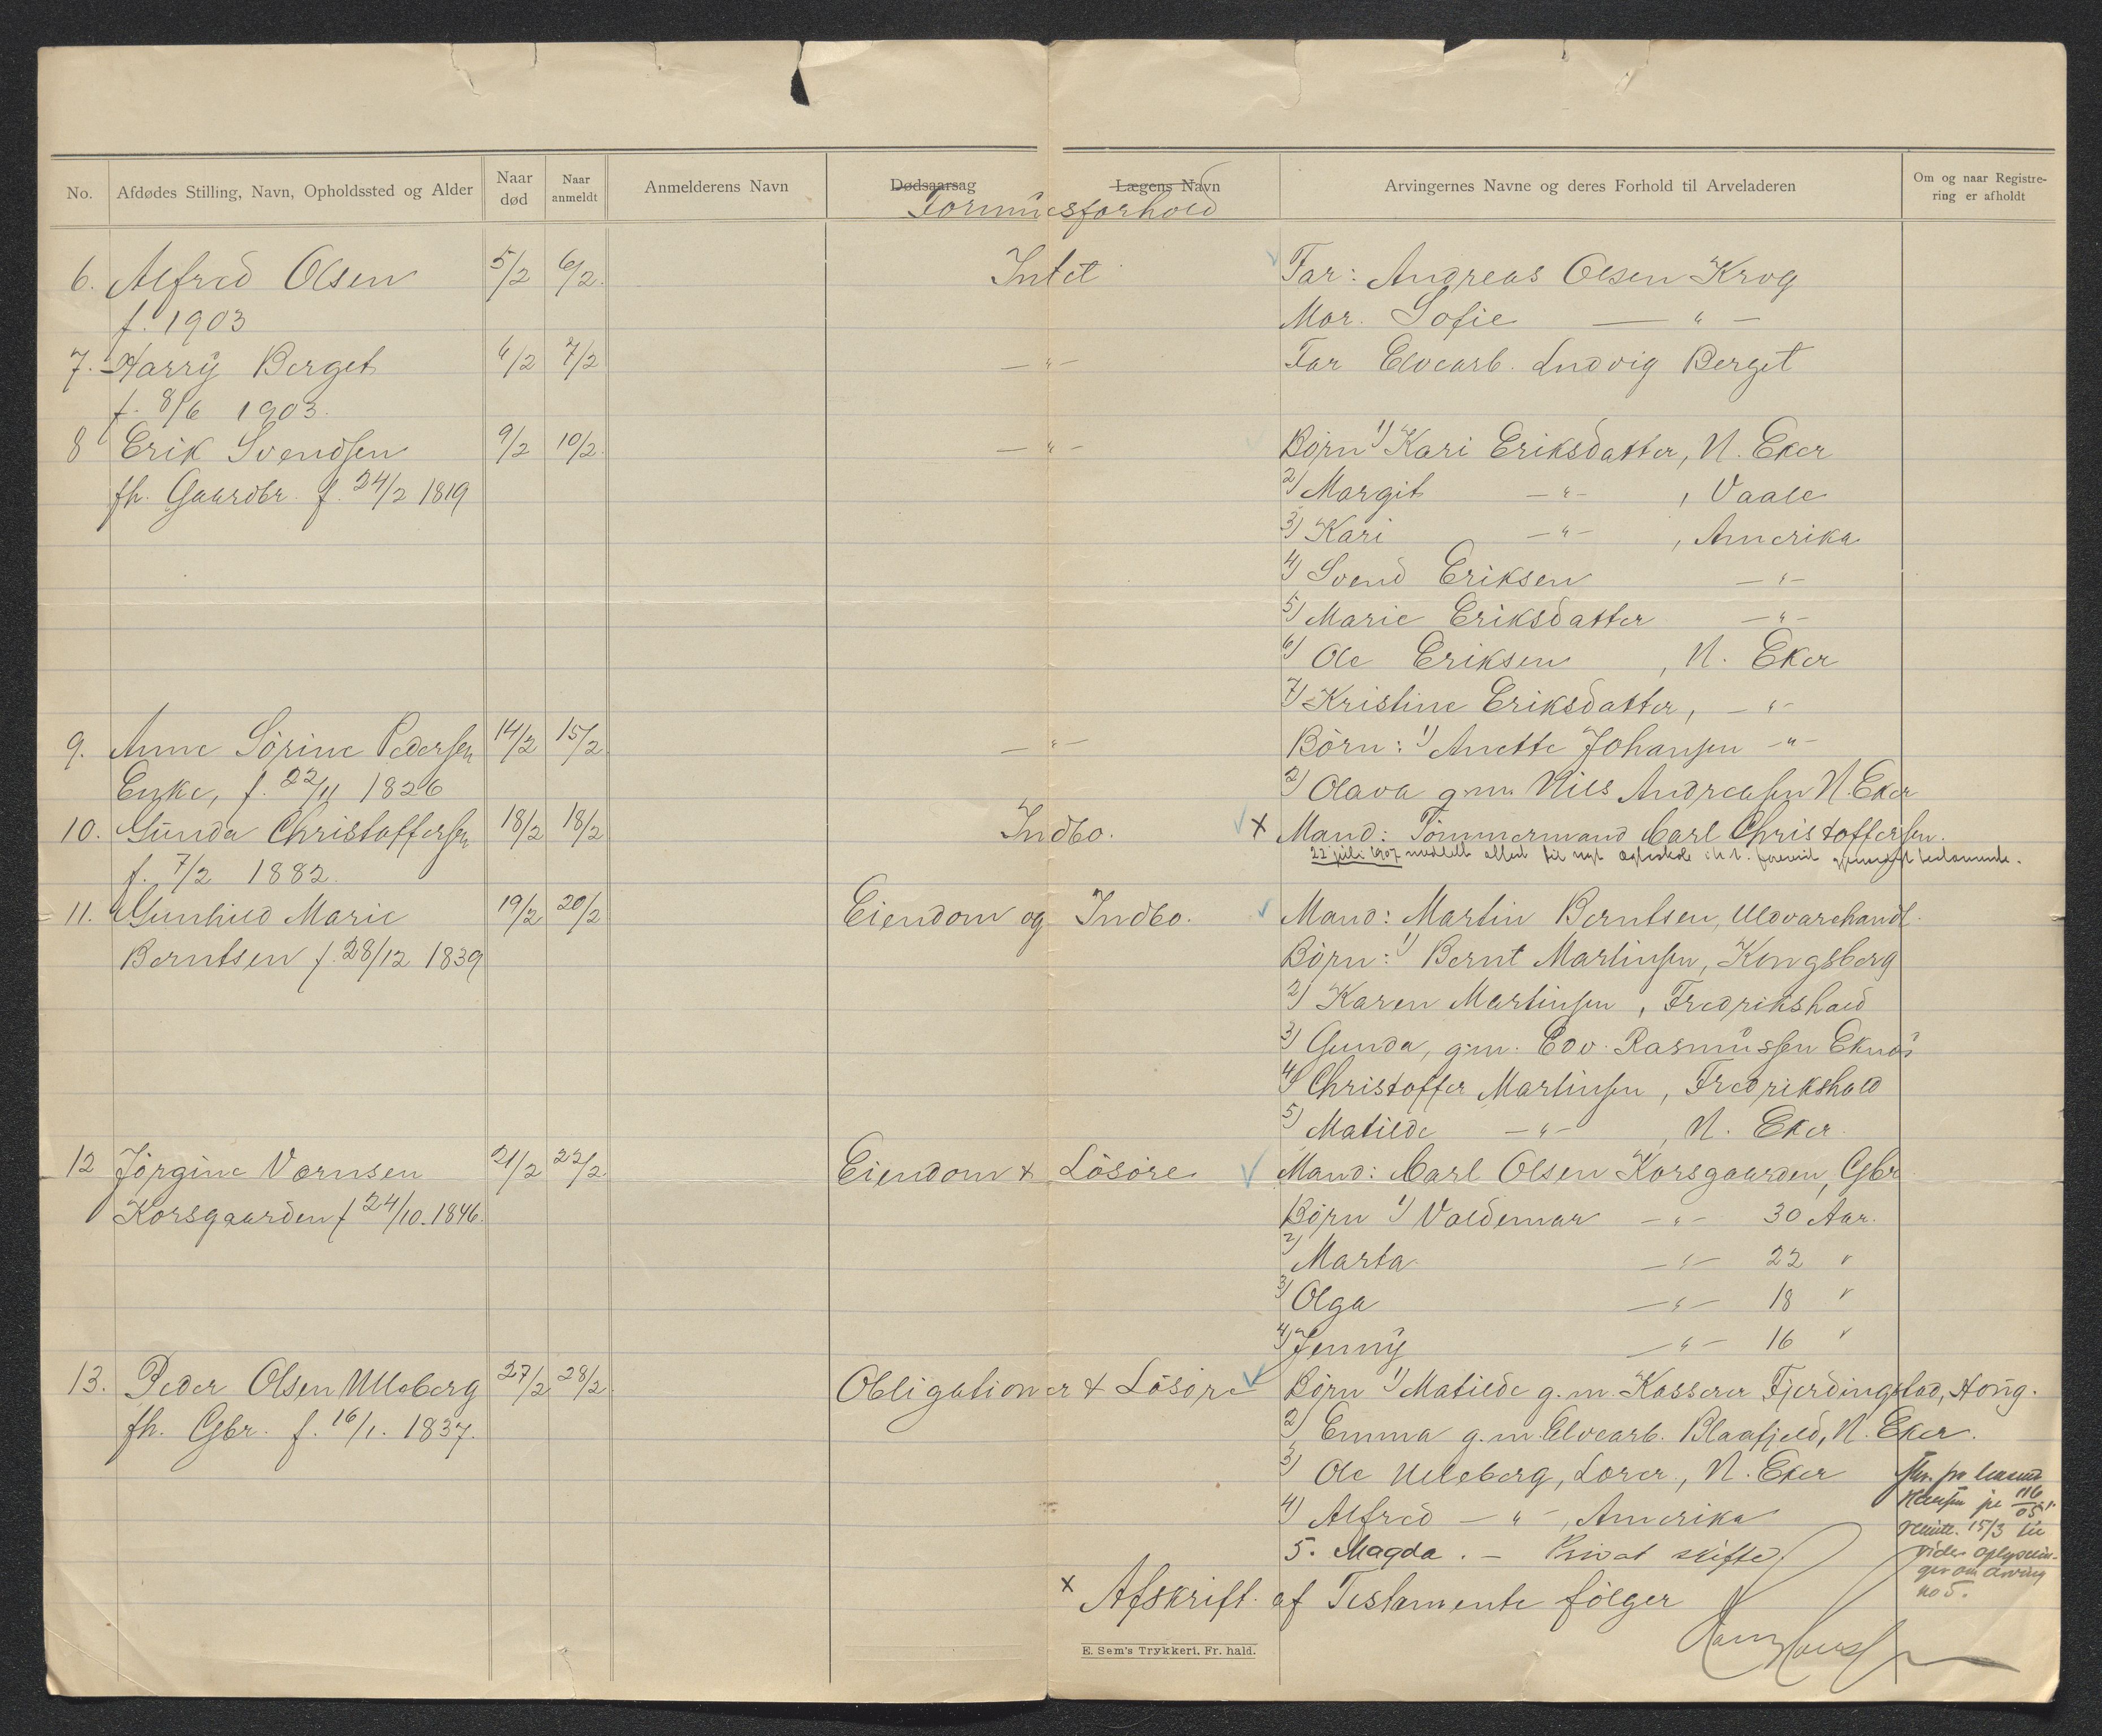 No. Afdødes Stilling, Navn, Opholdssted og Alder Naar død Naar anmeldt Anmelderens Navn Dødsaarsag Lægens Navn Arvingernes Navne og deres Forhold til Arveladeren Om og naar Registrering er afholdt
Formuesforhold
6. Alfred Olsen 5/2 6/2. Intet Far: Andreas Olsen Krog
f. 1903 Mor. Sofie — " —
7. Harry Berget 6/2 7/2 — " — Far Elvearb. Ludvig Berget
f. 8/6 1903.
8 Erik Svendsen 9/2 10/2. — " — Børn 1) Kari Eriksdatter, N. Eker
fh. Gaardbr. f. 24/2 1819 2) Margit — " — , Vaale
3) Kari — " — , Amerika
4) Svend Eriksen — " —
5) Marie Eriksdatter — " —
6) Ole Eriksen , N. Eker
7) Kristine Eriksdatter, — " —
9. Anne Sörine Pedersen 14/2 15/2 — " — Börn: 1) Anette Johansen — " —
Enke, f. 22/11 1826 2) Olava g.m. Nils Andreasen N. Eker
10. Gunda Christoffersen 18/2 18/2 Indbo. x Mand: Tömmermand Carl Christoffersen.
f. 7/2 1882. 22 juli 1907 meddelt attest til nyt
11. Gunhild Marie 19/2 20/2 Eiendom og Indbo. Mand: Martin Berntsen, Uldvarehandl.
Berntsen f. 28/12 1839 Børn: 1) Bernt Martinsen, Kongsberg
2) Karen Martinsen, Fredrikshald
3) Gunda, g.m. Edv. Rasmussen Eknæs
4) Christoffer Martinsen, Fredrikshald
5) Matilde — " — , N. Eker
12 Jörgine Vernsen 21/2 22/2. Eiendom & Lösöre Mand: Carl Olsen Korsgaarden, Gbr
Korsgaarden f 24/10. 1846. Børn 1) Valdemar — " — 30 Aar.
2) Marta — " — 22 "
3) Olga — " — 18 "
4) Jenny — " — 16 "
13. Peder Olsen Ulleberg 27/2 28/2. Obligationer & Lösöre Børn 1) Matilde g.m. Kasserer Fjerdingstad, Höng.
fh. Gbr. f. 16/1. 1837. 2) Emma g.m. Elvearb. Blaafjeld, N. Eker.
3) Ole Ulleberg, Lærer, N. Eker
4) Alfred — " — , Amerika
5. Magda. — Privat skifte.
x Afskrift af Testamente fölger
Skr. fra
116/05
15/3 til
videre oplysnin-
ger om arving
no 5.
E. Sem's Trykkeri. Fr. hald.